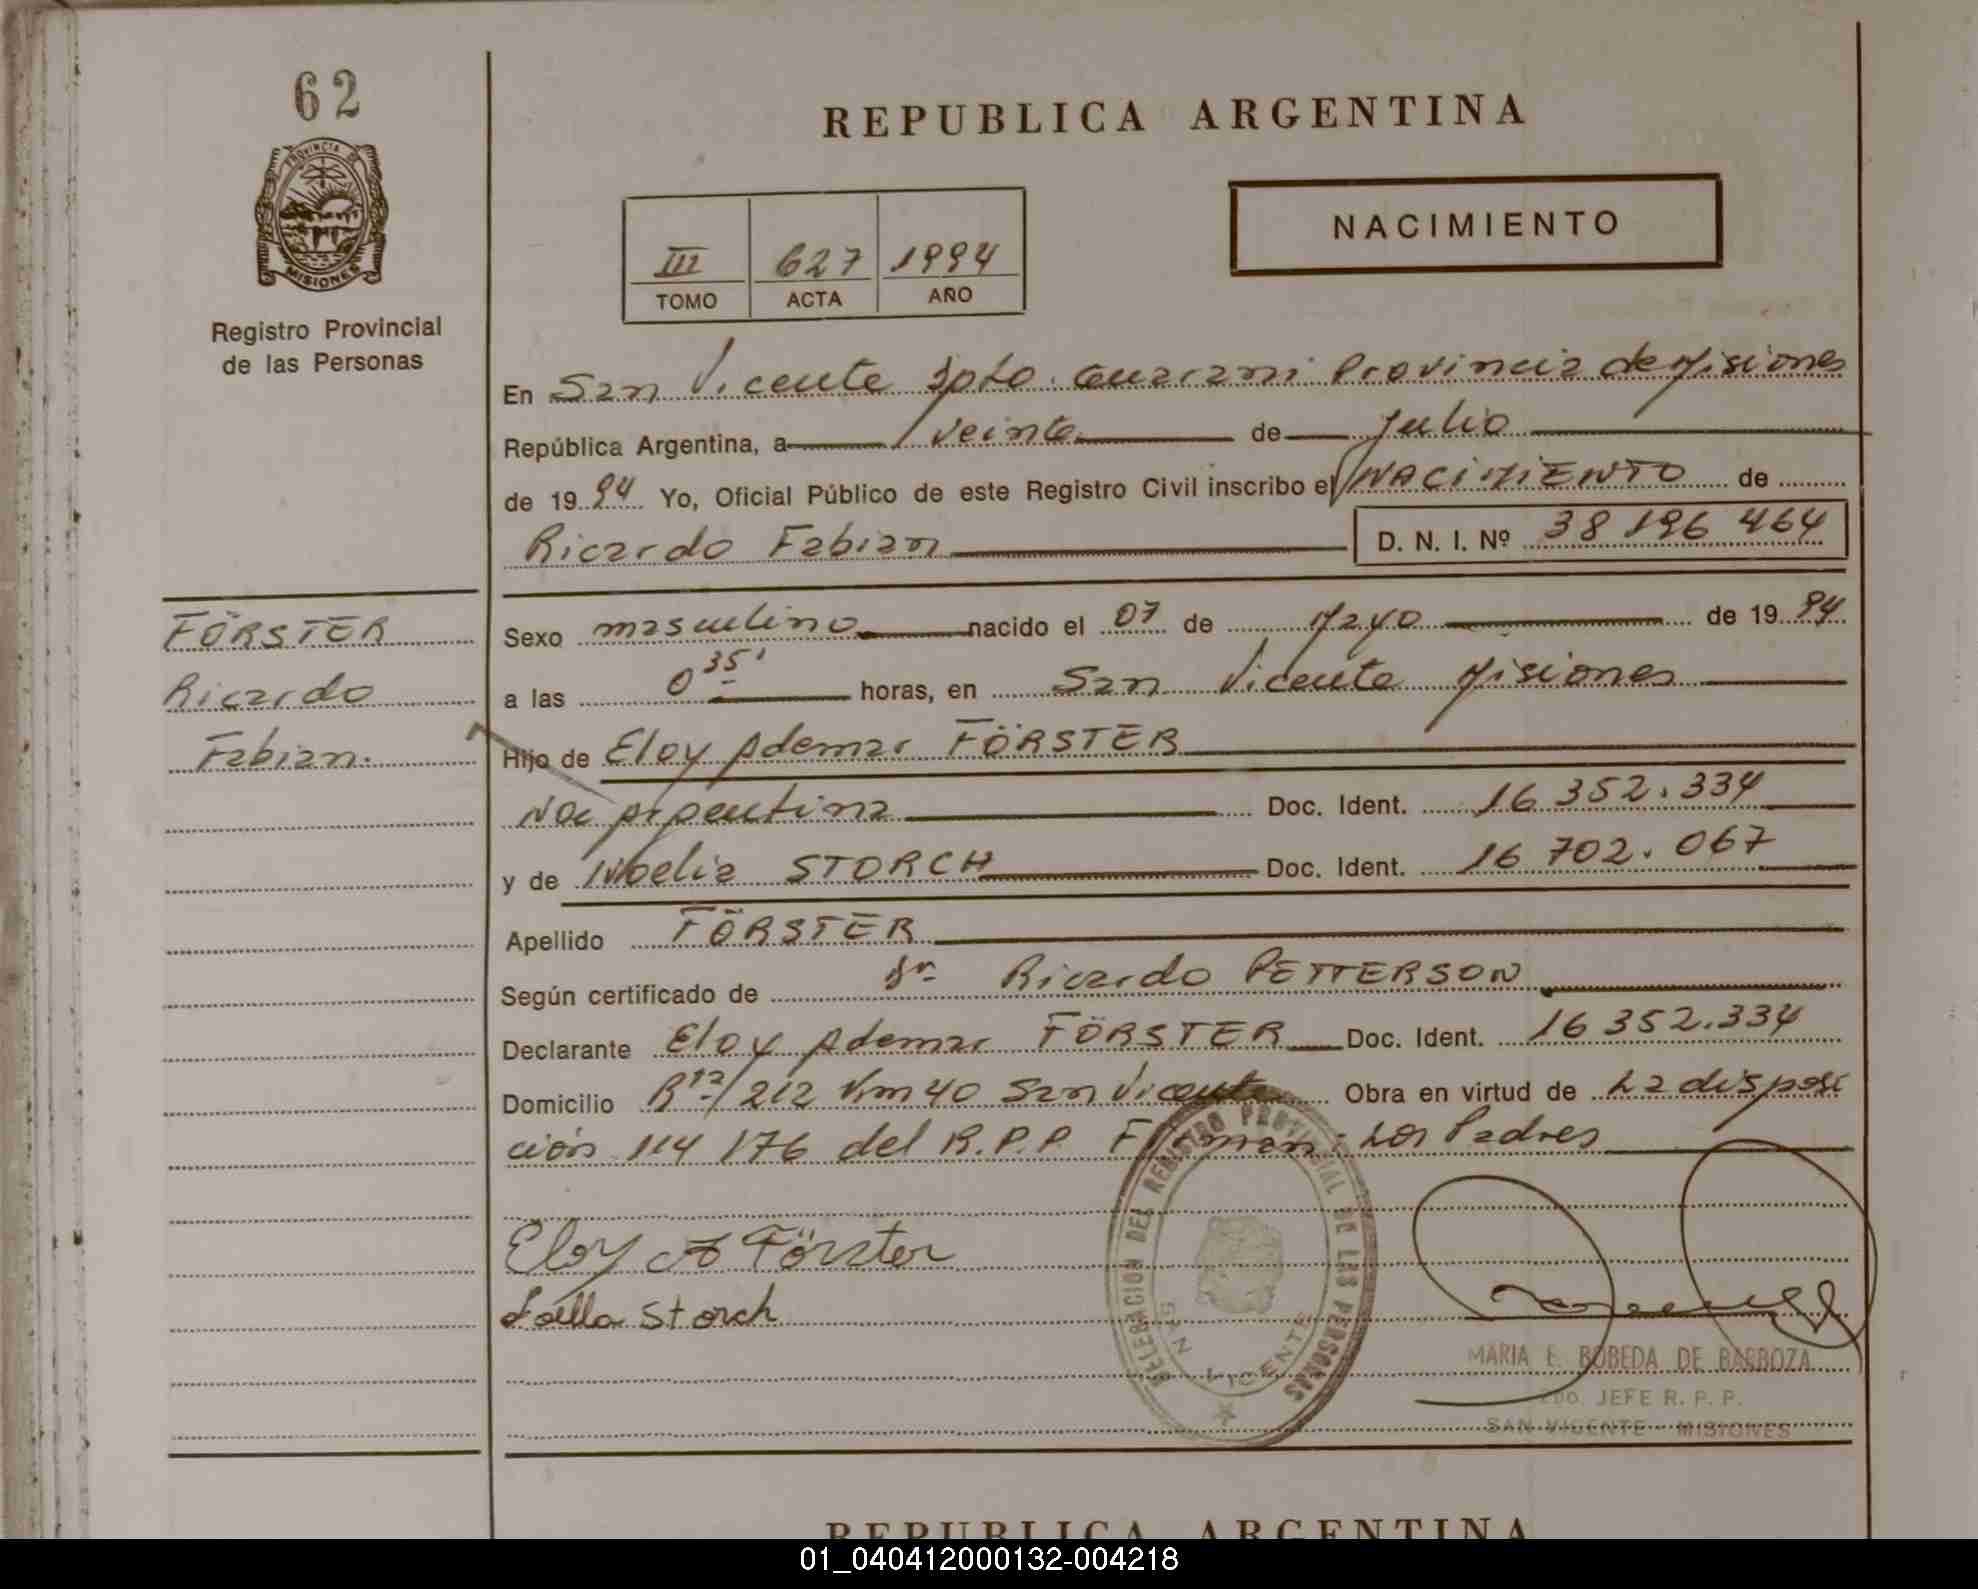 62
PROVINCIA DE
MISIONES
Registro Provincial
de las Personas
REPUBLICA ARGENTINA
NACIMIENTO
III 627 1994
TOMO ACTA AÑO
En San Vicente Dpto. Guarani Provincia de Misiones
República Argentina, a veinte de Julio
de 1994 Yo, Oficial Público de este Registro Civil inscribo el NACIMIENTO de
Ricardo Fabian D. N. I. Nº 38 196 464
FÖRSTER
Ricardo
Fabian.
Sexo masculino nacido el 07 de Mayo de 1994
a las 0 35' horas, en San Vicente Misiones
Hijo de Eloy Ademar FÖRSTER
Nac Argentina Doc. Ident. 16 352.334
y de Noelia STORCH Doc. Ident. 16 702.067
Apellido FÖRSTER
Según certificado de Dr Ricardo PETTERSON
Declarante Eloy Ademar FÖRSTER Doc. Ident. 16 352.334
Domicilio Rta/212 Km 40 San Vicente Obra en virtud de La disposi
ción 114 176 del R.P.P. Firman: Los Padres
Eloy A Förster
Storch
DELEGACION DEL REGISTRO PROVINCIAL DE LAS PERSONAS
SAN VICENTE
MARIA E. BOBEDA DE BARBOZA
JEFE R. P. P.
SAN VICENTE - MISIONES
REPUBLICA ARGENTINA
01_040412000132-004218